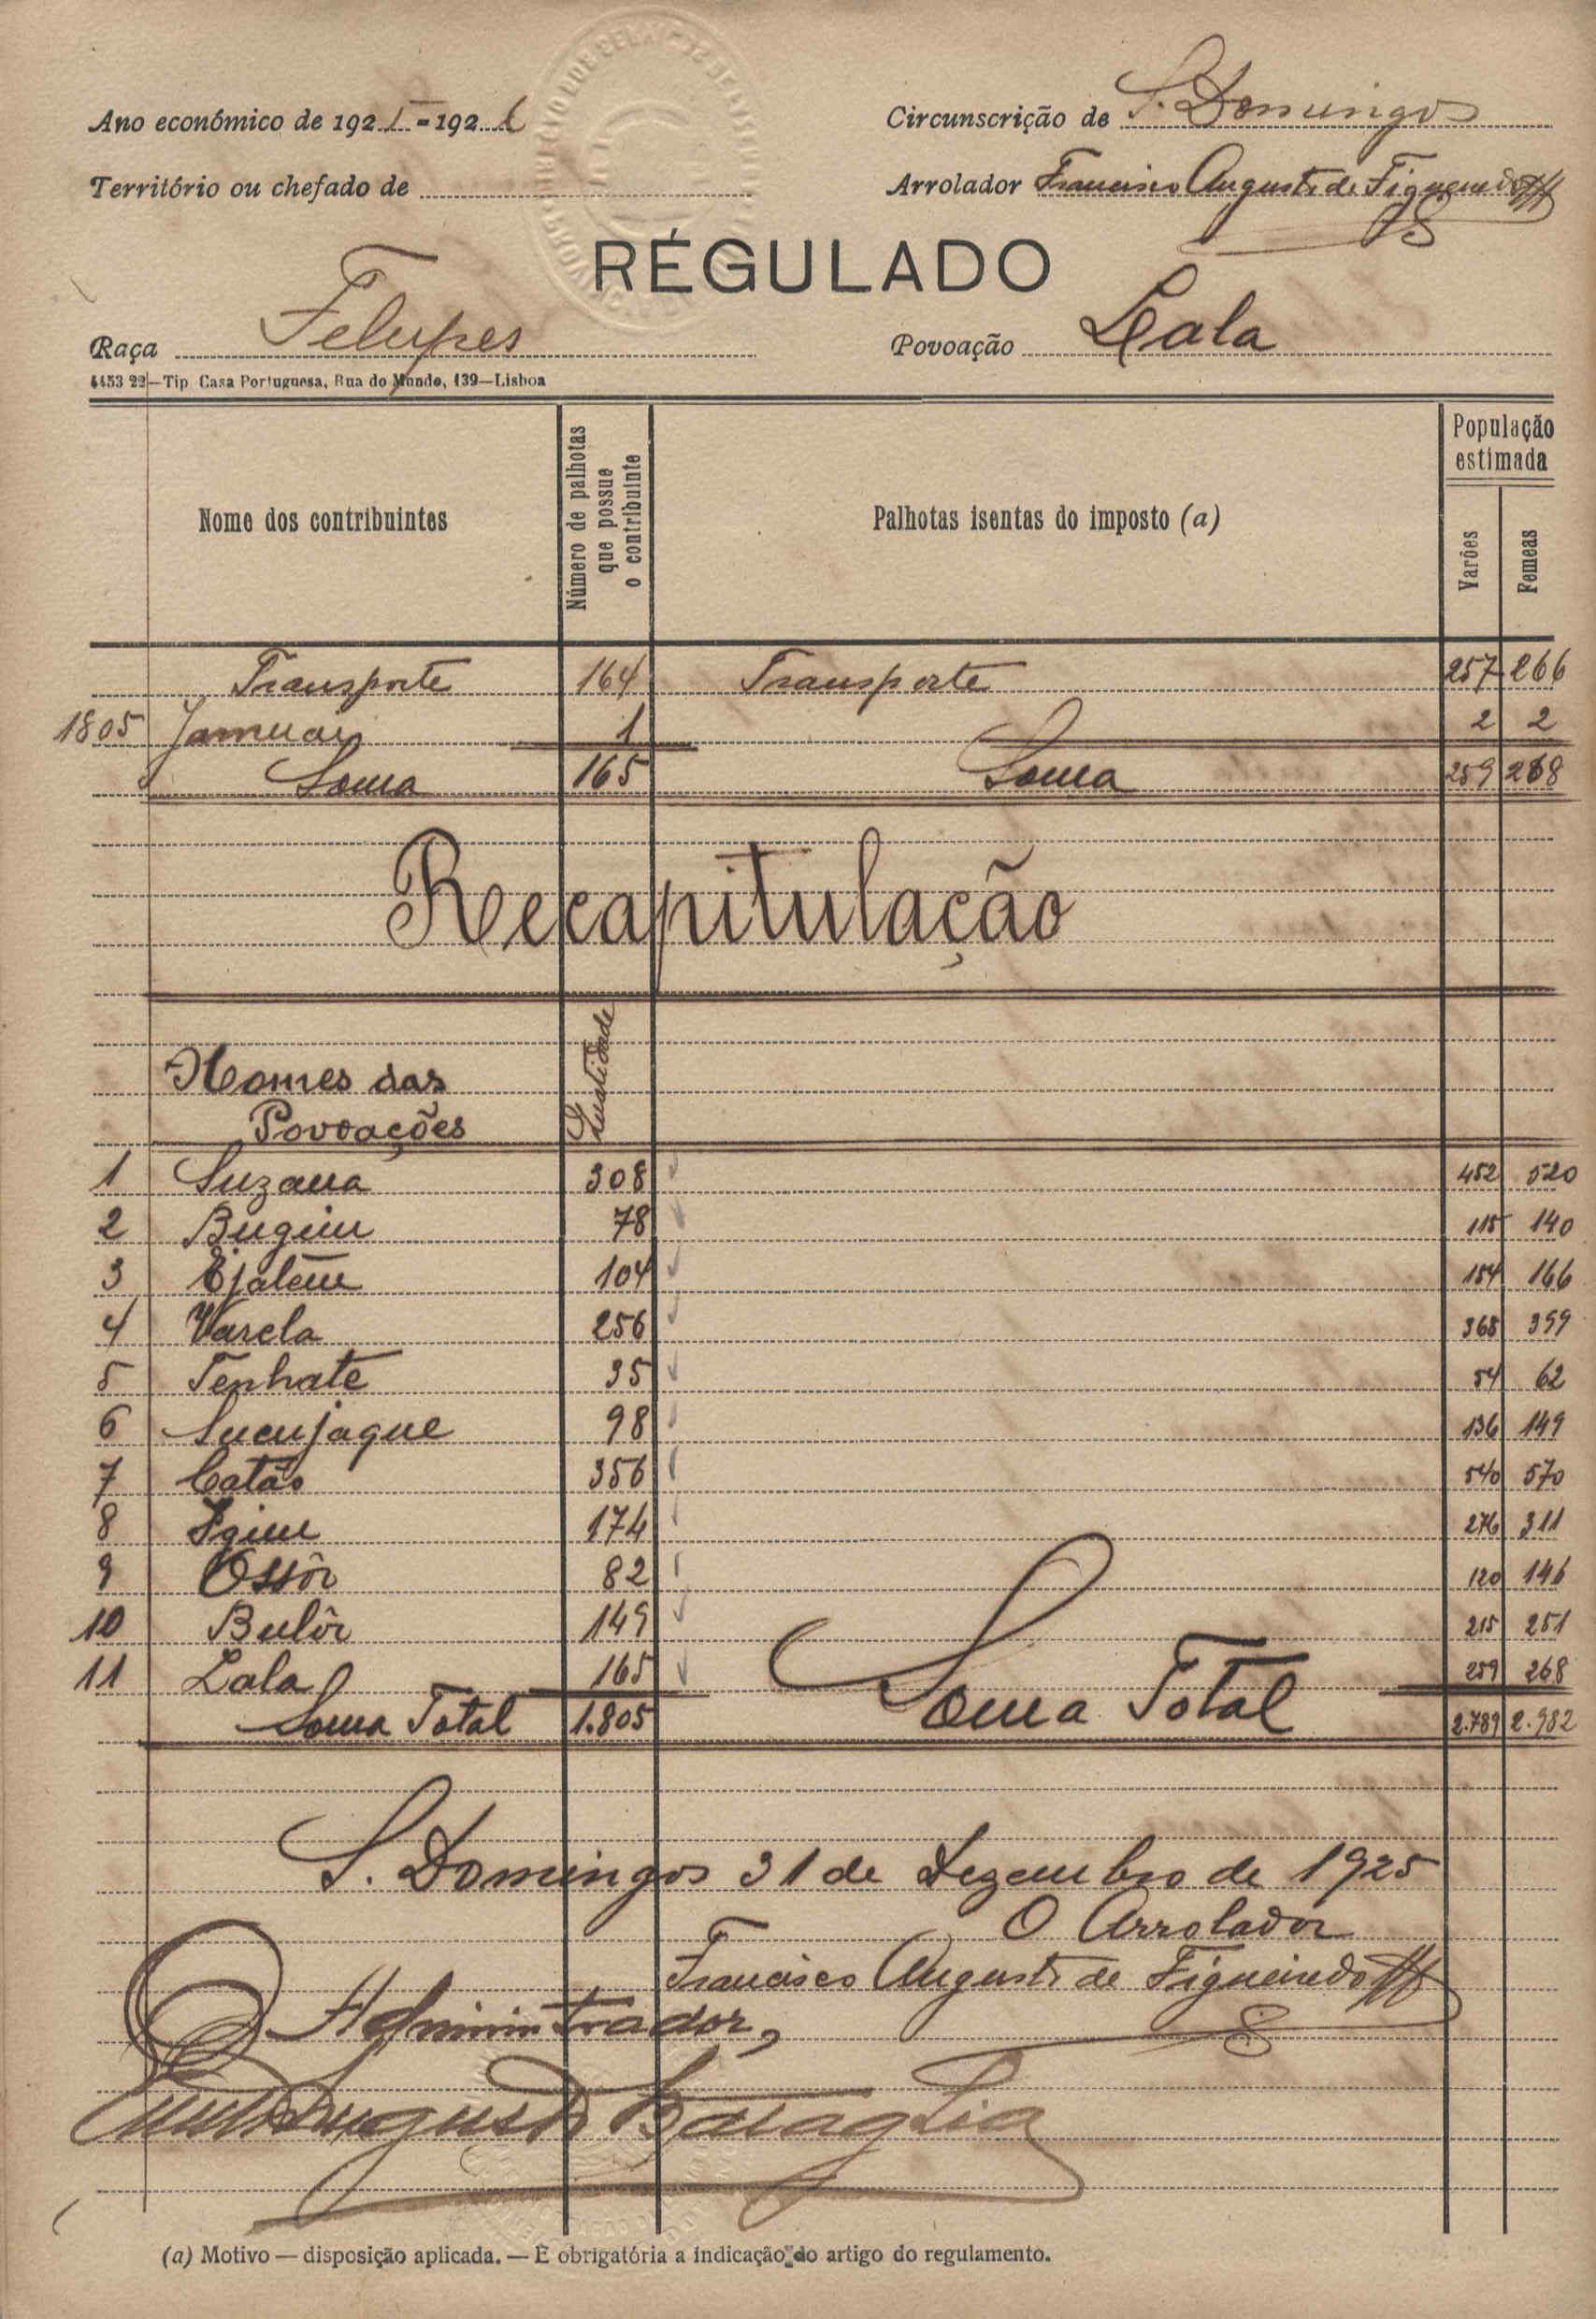 Ano económico de 1925-1926
Circunscrição de S. Domingos
Território ou chefado de
Arrolador Francisco Augusto de Figueiredo
RÉGULADO
Raça Felupes
Povoação Lala
4453 22—Tip Casa Portuguesa, Rua do Mundo, 139—Lisboa
Nome dos contribuintes
Número de palhotas que possue o contribuinte
Palhotas isentas do imposto (a)
População estimada
Varões
Femeas
Transporte 164 Transporte 257 266
1805 Jamuai 1 2 2
Soma 165 Soma 259 268
Recapitulação
Nomes das
Povoações
Quatidade
1 Suzana 308 452 520
2 Bugim 78 115 140
3 Ejatem 104 154 166
4 Varela 256 368 399
5 Tenhate 35 54 62
6 Sucujaque 98 136 149
7 Catão 356 540 570
8 Igim 174 276 311
9 Ossôr 82 120 146
10 Bulôr 149 215 251
11 Lala 165 259 268
Soma Total 1.805 Soma Total 2.789 2.982
S. Domingos 31 de Dezembro de 1925
O Arrolador
Francisco Augusto de Figueiredo
O Administrador,
Augusto
(a) Motivo — disposição aplicada. — É obrigatória a indicação do artigo do regulamento.